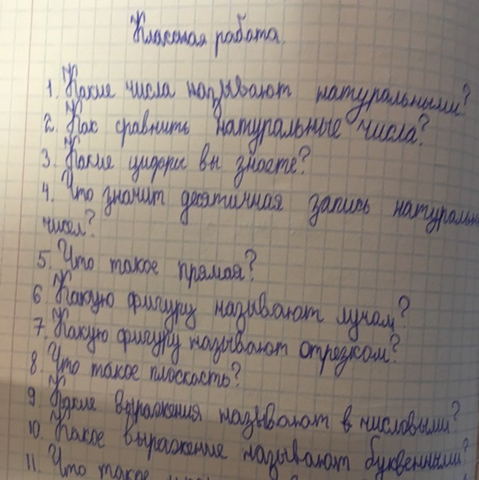 Классная работа.
1. Какие числа называют натуральными?
2. Как сравнить натуральные числа?
3. Какие цифры вы знаете?
4. Что значит десятичная запись натуральн
чисел?
5. Что такое прямая?
6. Какую фигуру называют лучом?
7. Какую фигуру называют отрезком?
8. Что такое плоскость?
9. Какие выражения называют в числовыми?
10. Какое выражение называют буквенными?
11. Что такое